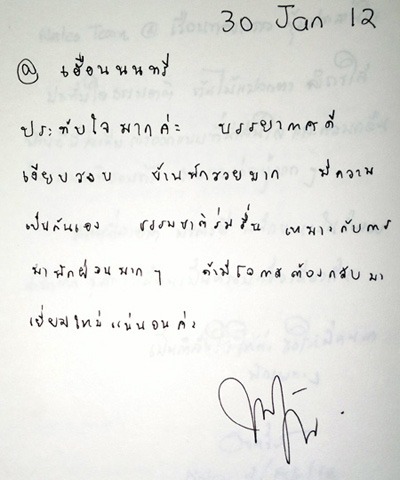 30 Jan 12
@ เฮือนนนทรี
ประทับใจมากค่ะ บรรยากาศดี
เงียบสงบ บ้านพักสวยมาก มีความ
เป็นกันเอง ธรรมชาติร่มรื่น เหมาะกับการ
มาพักผ่อนมาก ๆ ถ้ามีโอกาสต้องกลับมา
เยี่ยมใหม่แน่นอนค่ะ